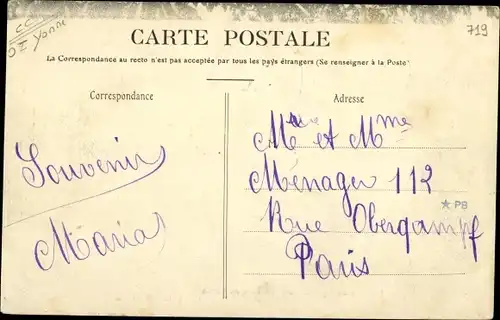 CC
Yonne
719
CARTE POSTALE
La Correspondance au recto n'est pas acceptée par tous les pays étrangers (Se renseigner à la Poste)
Correspondance
Adresse
Souvenir
Maria
et Mme
Ménager 112
Rue Oberkampf
Paris
★ PB